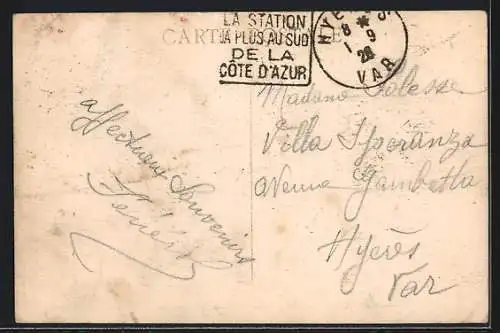 LA STATION
LA PLUS AU SUD
DE LA
CÔTE D'AZUR
CARTE POSTALE
HYÈRES
8 *
1 9
28
VAR
affectueux Souvenirs
Madame
Villa Speranza
Avenue Gambetta
Hyères
Var